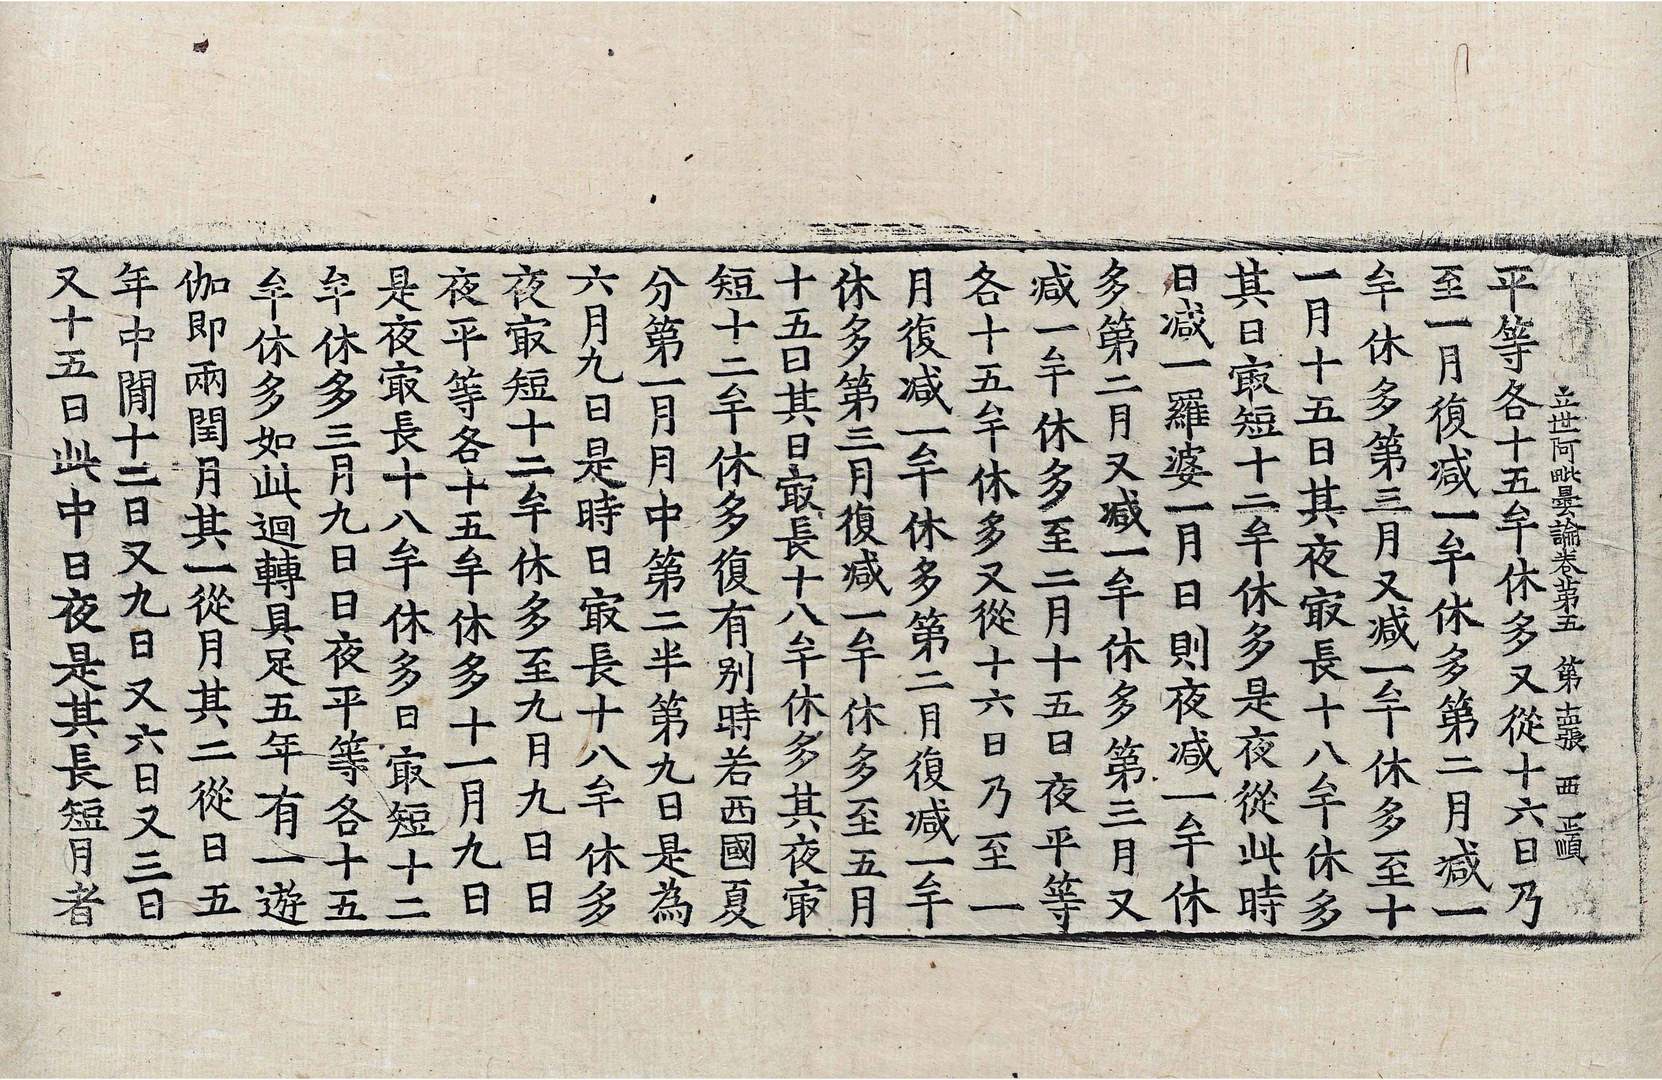 立世阿毗曇論卷第五 第十四張 西 正嵿
平等各十五牟休多又從十六日乃
至一月復减一牟休多第二月减一
牟休多第三月又减一牟休多至十
一月十五日其夜㝡長十八牟休多
其日㝡短十二牟休多是夜從此時
日减一羅婆一月日則夜减一牟休
多第二月又减一牟休多第三月又
减一牟休多至二月十五日夜平等
各十五牟休多又從十六日乃至一
月復减一牟休多第二月復减一牟
休多第三月復减一牟休多至五月
十五日其日㝡長十八牟休多其夜㝡
短十二牟休多復有别時若西國夏
分第一月月中第二半第九日是為
六月九日是時日㝡長十八牟休多
夜㝡短十二牟休多至九月九日日
夜平等各十五牟休多十一月九日
是夜㝡長十八牟休多日㝡短十二
牟休多三月九日日夜平等各十五
牟休多如此迴轉具足五年有一遊
伽即兩閏月其一從月其二從日五
年中閒十二日又九日又六日又三日
又十五日此中日夜是其長短月者